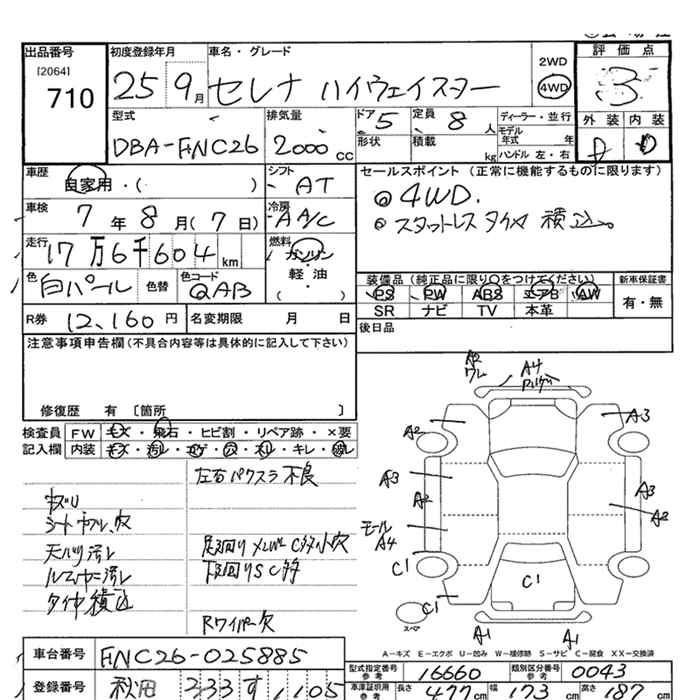 出品番号
[2064]
710
初度登録年月
25 9月
車名・グレード
セレナ ハイウェイスター
2WD
4WD
評価点
3
外装 内装
D D
型式
DBA-FNC26
排気量
2000 cc
ドア 5
形状
定員 8 人
積載 kg
ディーラー・並行
モデル年式 年
ハンドル 左・右
車歴
自家用・( )
シフト
AT
セールスポイント (正常に機能するものに限ります)
4WD.
スタットレス タイヤ 積込。
車検
7年8月(7日)
冷房
AAC
走行
17万6千604 km
燃料
ガソリン
軽油
( ・ )
色
白パール
色替
色コード
QAB
装備品 (純正品に限り○をつけてください)
PS PW ABS エアB AW
SR ナビ TV 本革
新車保証書
有・無
R券 12,160円
名変期限 月 日
後日品
注意事項申告欄(不具合内容等は具体的に記入して下さい)
修復歴 有 [箇所 ]
検査員 FW キズ・飛石・ヒビ割・リペア跡・×要
記入欄 内装 キズ・汚レ・コゲ・穴・スレ・キレ・破レ
左右パワスラ 不良
シートヤブレ、穴
天パリ汚レ
ルームナカ汚レ
タイヤ積込
足回り メンバー C多小穴
下回りS C多
Rワイパー欠
A2
ワレ
A4
A3
A2
A3
A2
A3
A2
モール
A4
C1
C1
C1
C1
スペア
A1
A1
A−キズ E−エクボ U−凹み W−補修跡 S−サビ C−腐食 XX−交換済
車台番号 FNC26-025885
型式指定番号 参考 16660
類別区分番号 参考 0043
登録番号 秋田 233 す 1105
車庫証明用 参考 長さ 477cm 幅 173cm 高さ 187cm